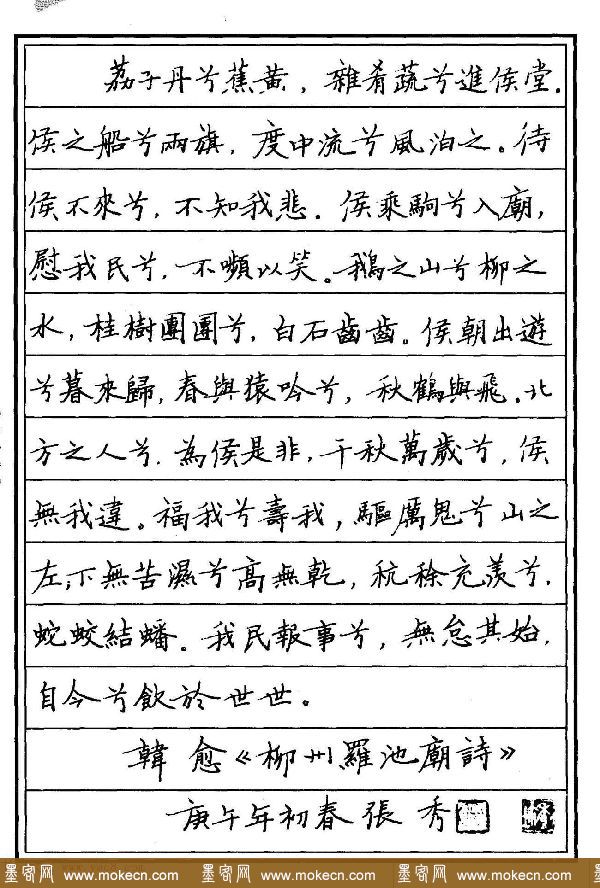 荔子丹兮蕉黄，雜肴蔬兮進侯堂．
侯之船兮兩旗，度中流兮風泊之。待
侯不來兮，不知我悲．侯乘駒兮入廟，
慰我民兮，不嚬以笑。鵝之山兮柳之
水，桂樹團團兮，白石齒齒。侯朝出遊
兮暮來歸，春與猿吟兮，秋鶴與飛。北
方之人兮，為侯是非，千秋萬歲兮，侯
無我違。福我兮壽我，驅厲鬼兮山之
左，下無苦濕兮高無乾，秔稌充羡兮，
蛇蛟結蟠。我民報事兮，無怠其始，
自今兮飲於世世。
韓愈《柳州羅池廟詩》
庚午年初春張秀
墨客网 www.mokecn.com 墨客网 www.mokecn.com 墨客网 www.mokecn.com